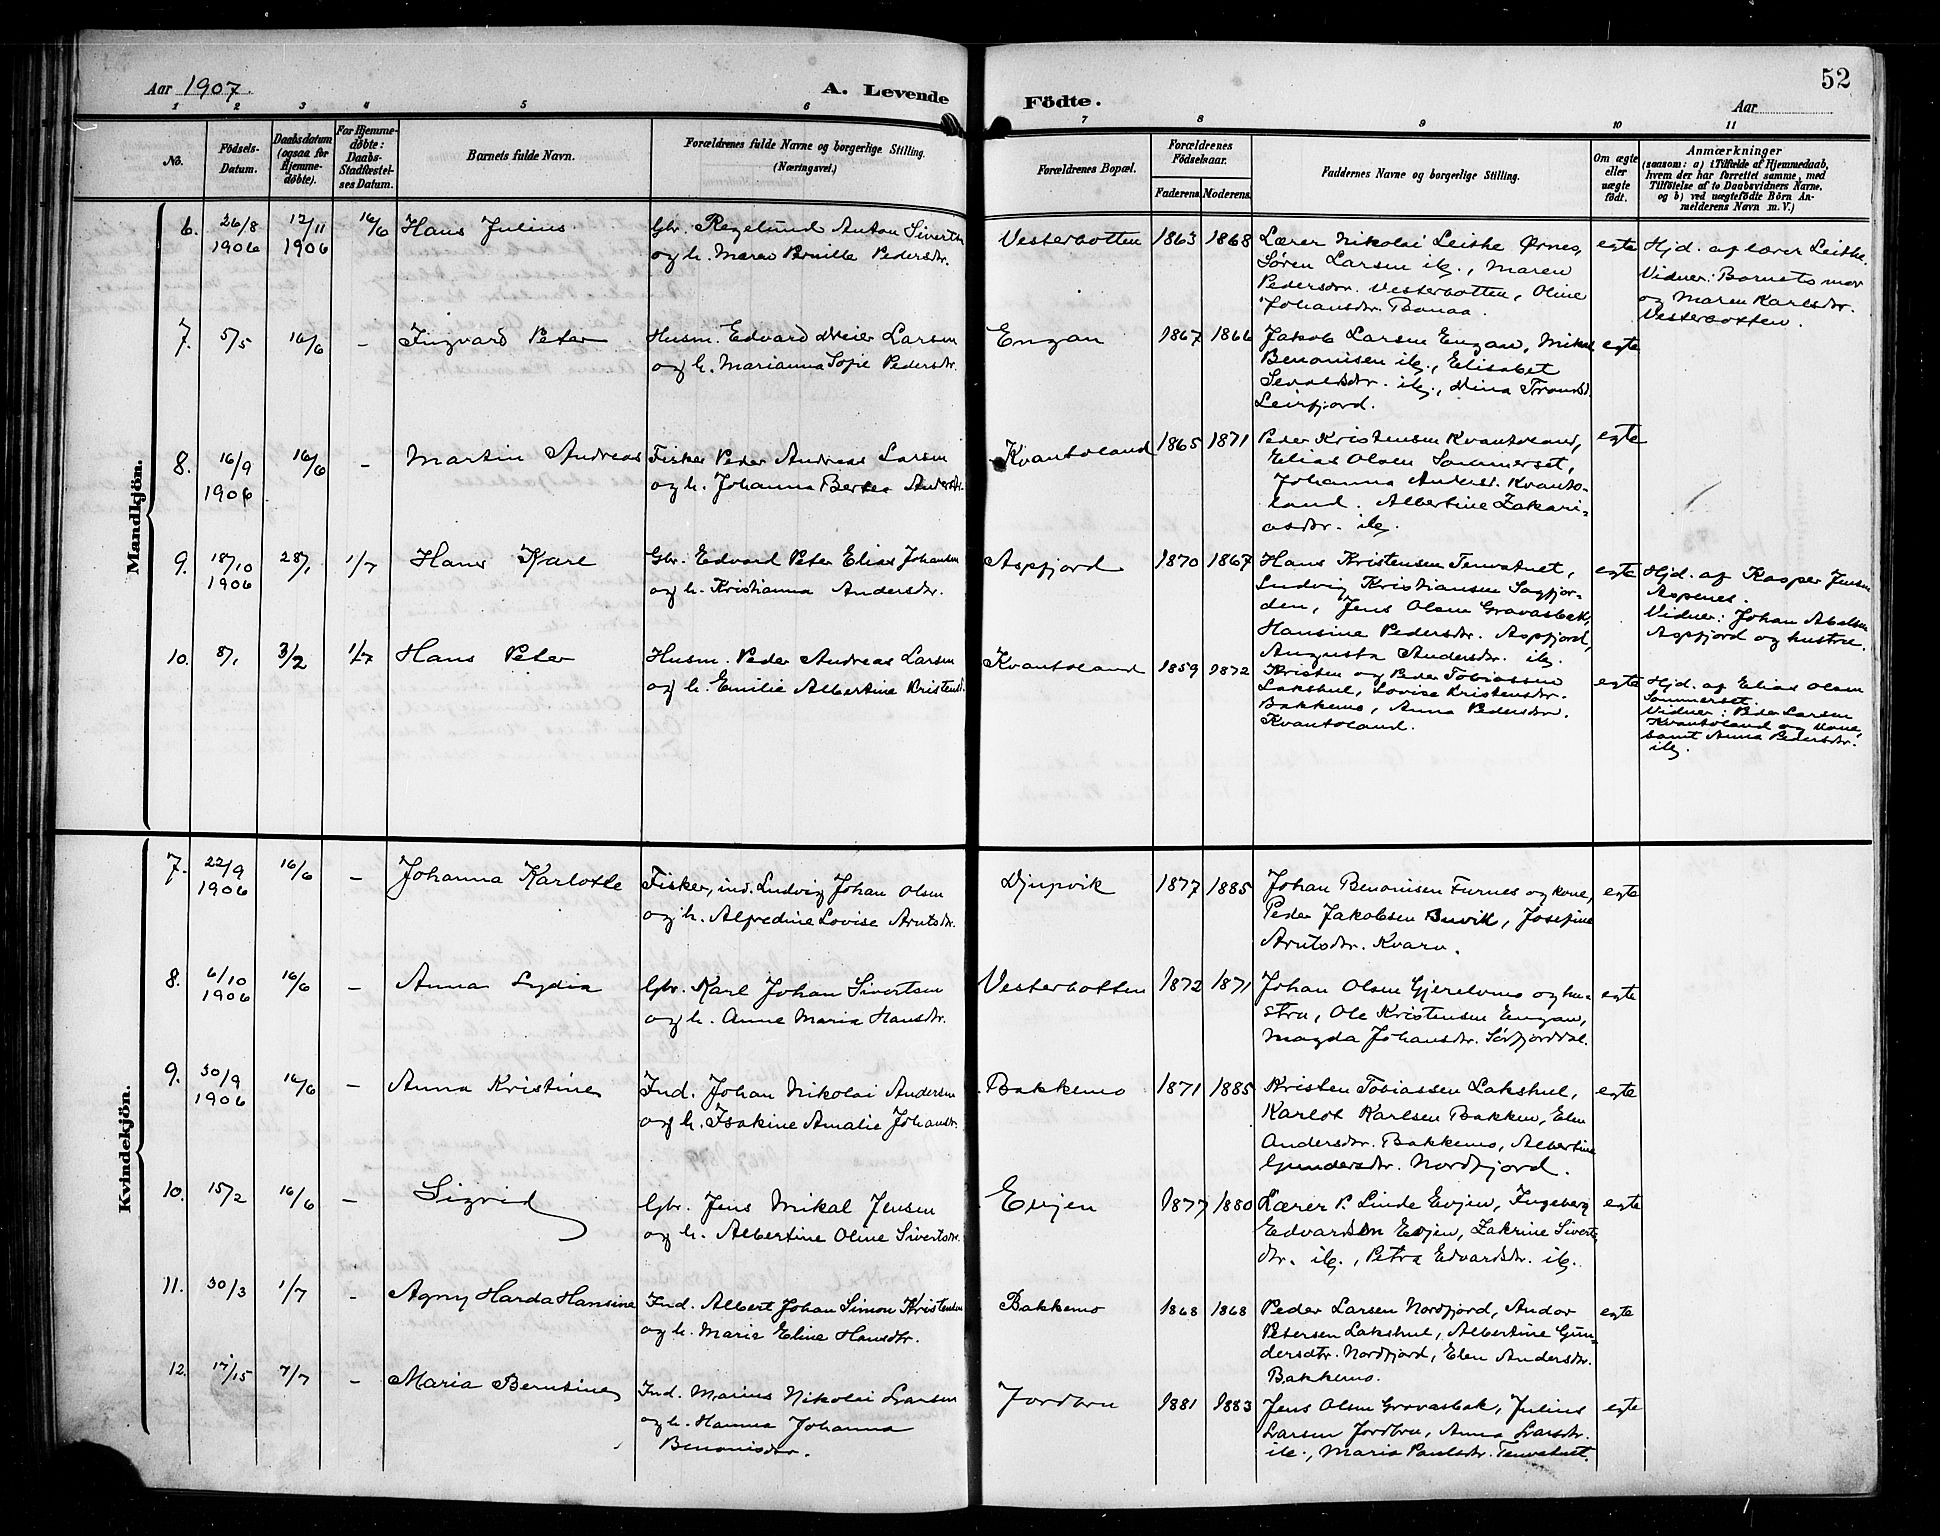 Aar 1907.
A. Levende
Födte.
Aar
52
1 2 3 4 5 6 7 8 9 10 11
No.
Födsels-
Datum.
Daabsdatum
(ogsaa for
Hjemme-
döbte).
For Hjemme-
döbte:
Daabs-
Stadfæstel-
ses Datum.
Barnets fulde Navn.
Forældrenes fulde Navne og borgerlige Stilling.
(Næringsvei.)
Forældrenes Bopæl.
Forældrenes
Födselsaar.
Faderens. Moderens.
Faddernes Navne og borgerlige Stilling.
Om ægte
eller
uægte
födt.
Anmærkninger
(saasom: a) i Tilfælde af Hjemmedaab,
hvem der har forrettet samme, med
Tilföielse af to Daabsvidners Navne,
og b) ved uægtefödte Börn An-
melderens Navn m. V.)
Mandkjön.
6. 26/8 1906 12/11 1906 16/6 Hans Julius.
Gbr. Regelund Anton Sivertsn
og h. Maren Pedersdtr.
Vesterbotten 1863 1868
Lærer Nikolai Leithe Ørnes,
Søren Larsen ib., Maren
Pedersdtr. Vesterbotten, Oline
Johansdtr. Bonaa.
egte
Hjd. af lærer Leithe.
Vidner: Barnets mor
og Maren Karlsdtr.
Vesterbotten.
7. 5/5 16/6 – Ingvard Peter
Husm. Edvard Meier Larsen
og h. Marianna Sofie Pedersdtr.
Engan 1867 1866
Jakob Larsen Engan, Mikal
Benonisen ib., Elisabet
Sevaldsdtr. ib., Mina
Leirfjord.
egte
8. 16/9 1906 16/6 – Martin Andreas
Fisker Peder Andreas Larsen
og h. Johanna Andersdtr.
Kvantoland 1865 1871
Peder Kristensen Kvantoland,
Elias Olsen Sommerset,
Johanna Andersd. Kvanto-
land. Albertine Zakari-
asdtr. ib.
egte
9. 18/10 1906 28/1 1/7 Hans Karl
Gbr. Edvard Peter Elias Johansen
og h. Kristianna Andersdtr.
Aspfjord 1870 1867
Hans Kristensen Tenvatnet,
Ludvig Kristiansen Sagfjor-
den, Jens Olsen Gravasbak,
Hansine Pedersdtr. Aspfjord,
Augusta Andersdtr. ib.
egte
Hjd. af Kasper Jensen
Aspenes.
Vidner: Johan Abelsen
Aspfjord og hustru.
10. 8/1 3/2 1/7 Hans Peter
Husm. Peder Andreas Larsen
og h. Emilie Albertine Kristensd.
Kvantoland 1859 1872
Kristen og Peder Tobiassen
Lakshul, Lovise Kristensdtr.
Bakkemo, Anna Pedersdtr.
Kvantoland.
egte
Hjd. af Elias Olsen
Sommerset.
Vidner: Peder Larsen
Kvantoland og kone,
samt Anna Pedersdtr.
ib.
Kvindekjön.
7. 22/9 1906 16/6 – Johanna Karlotte
Fisker, ind. Ludvig Johan Olsen
og h. Alfredine Lovise Arntsdtr.
Djupvik 1877 1885
Johan Benonisen Furnes og kone,
Peder Jakobsen Buvik, Josefine
Arntsdtr. Kvarv.
egte
8. 6/10 1906 16/6 – Anna Lydia
Gbr. Karl Johan Sivertsen
og h. Anne Maria Hansdtr.
Vesterbotten 1872 1871
Johan Olsen Gjerelvmo og hu-
stru, Ole Kristensen Engan,
Magda Johansdtr. Sørfjorddal.
egte
9. 30/9 1906 16/6 – Anna Kristine
Ind. Johan Nikolai Andersen
og h. Isakine Amalie Johansdtr.
Bakkemo 1871 1885
Kristen Tobiassen Lakshul,
Karlot Karlsen Bakken, Elen
Andersdtr. Bakkemo, Albertine
Gundersdtr. Nordfjord.
egte
10. 15/2 16/6 – Sigrid
Gbr. Jens Mikal Jensen
og h. Albertine Oline Sivertsdtr.
Evjen 1877 1880
Lærer P. Linde Evjen, Ingeberg
Edvardsen Evjen, Zakrine Siverts-
dtr. ib., Petra Edvardsdtr. ib.
egte
11. 30/3 1/7 – Agny Harda Hansine
Ind. Albert Johan Simon Kristensen
og h. Marie Eline Hansdtr.
Bakkemo 1868 1868
Peder Larsen Nordfjord, Andor
Petersen Lakshul, Albertine Gun-
dersdtr. Nordfjord, Elen Andersdtr.
Bakkemo.
egte
12. 17/15 7/7 – Maria Berntine
Ind. Marius Nikolai Larsen
og h. Hanna Johanna
Benonisdtr.
Jordbru 1881 1883
Jens Olsen Gravasbak, Julius
Larsen Jordbru, Anna Larsdtr.
ib., Maria Paulsdtr. Tenvatnet.
egte